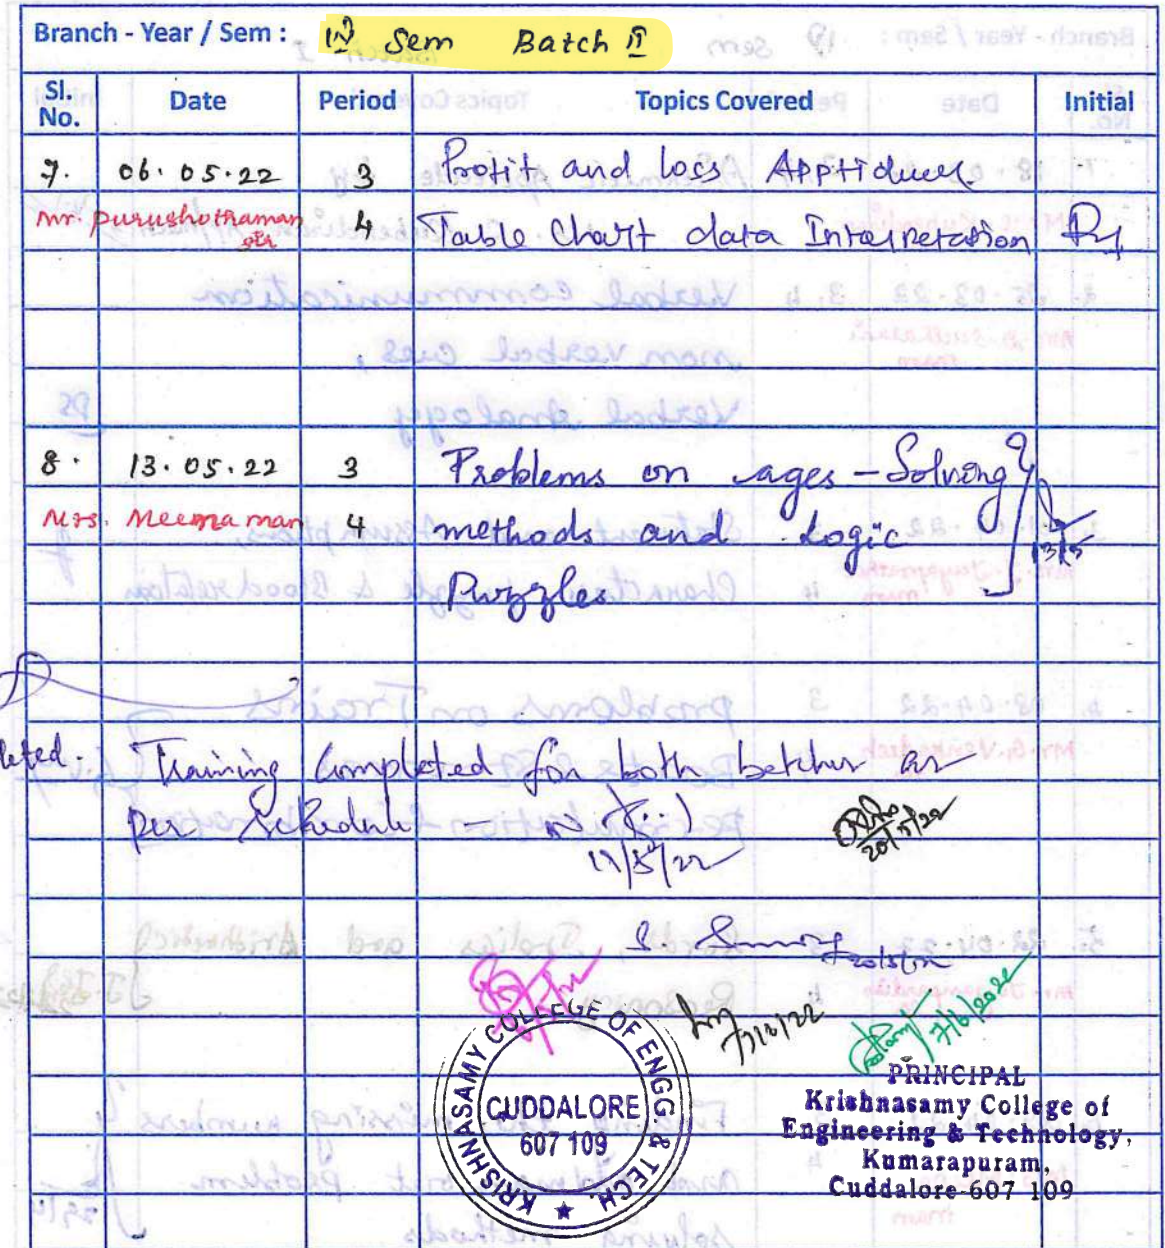 Branch - Year / Sem : IV Sem Batch II
Sl. No. Date Period Topics Covered Initial
7. 06.05.22 3 Profit and loss Apptidues.
Mr. Purushothaman 4 Table Chart data Interpretation
8. 13.05.22 3 Problems on ages - Solving
Mrs. Meena mam 4 methods and Logic
Puzzles
leted. Training Completed for both batches as
per Schedule -
17/5/22
20/5/22
20/5/22
7/6/22
7/6/2022
KRISHNASAMY COLLEGE OF ENGG & TECH.
CUDDALORE
607 109
PRINCIPAL
Krishnasamy College of
Engineering & Technology,
Kumarapuram,
Cuddalore-607 109